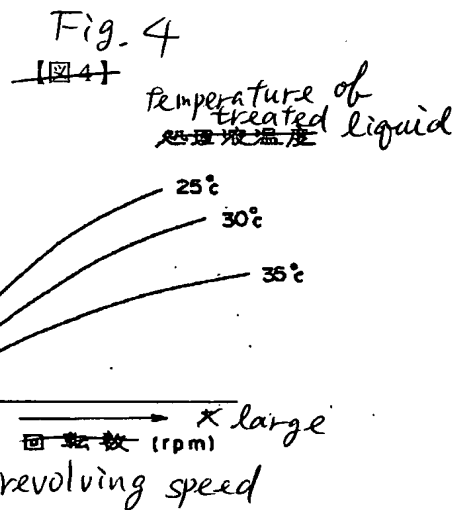 Fig. 4
【図4】
temperature of
treated liquid
処理液温度
25°c
30°c
35°c
大 large
回転数 (rpm)
revolving speed